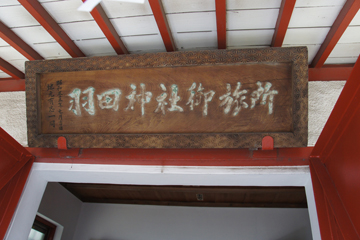 羽田神社御旅所